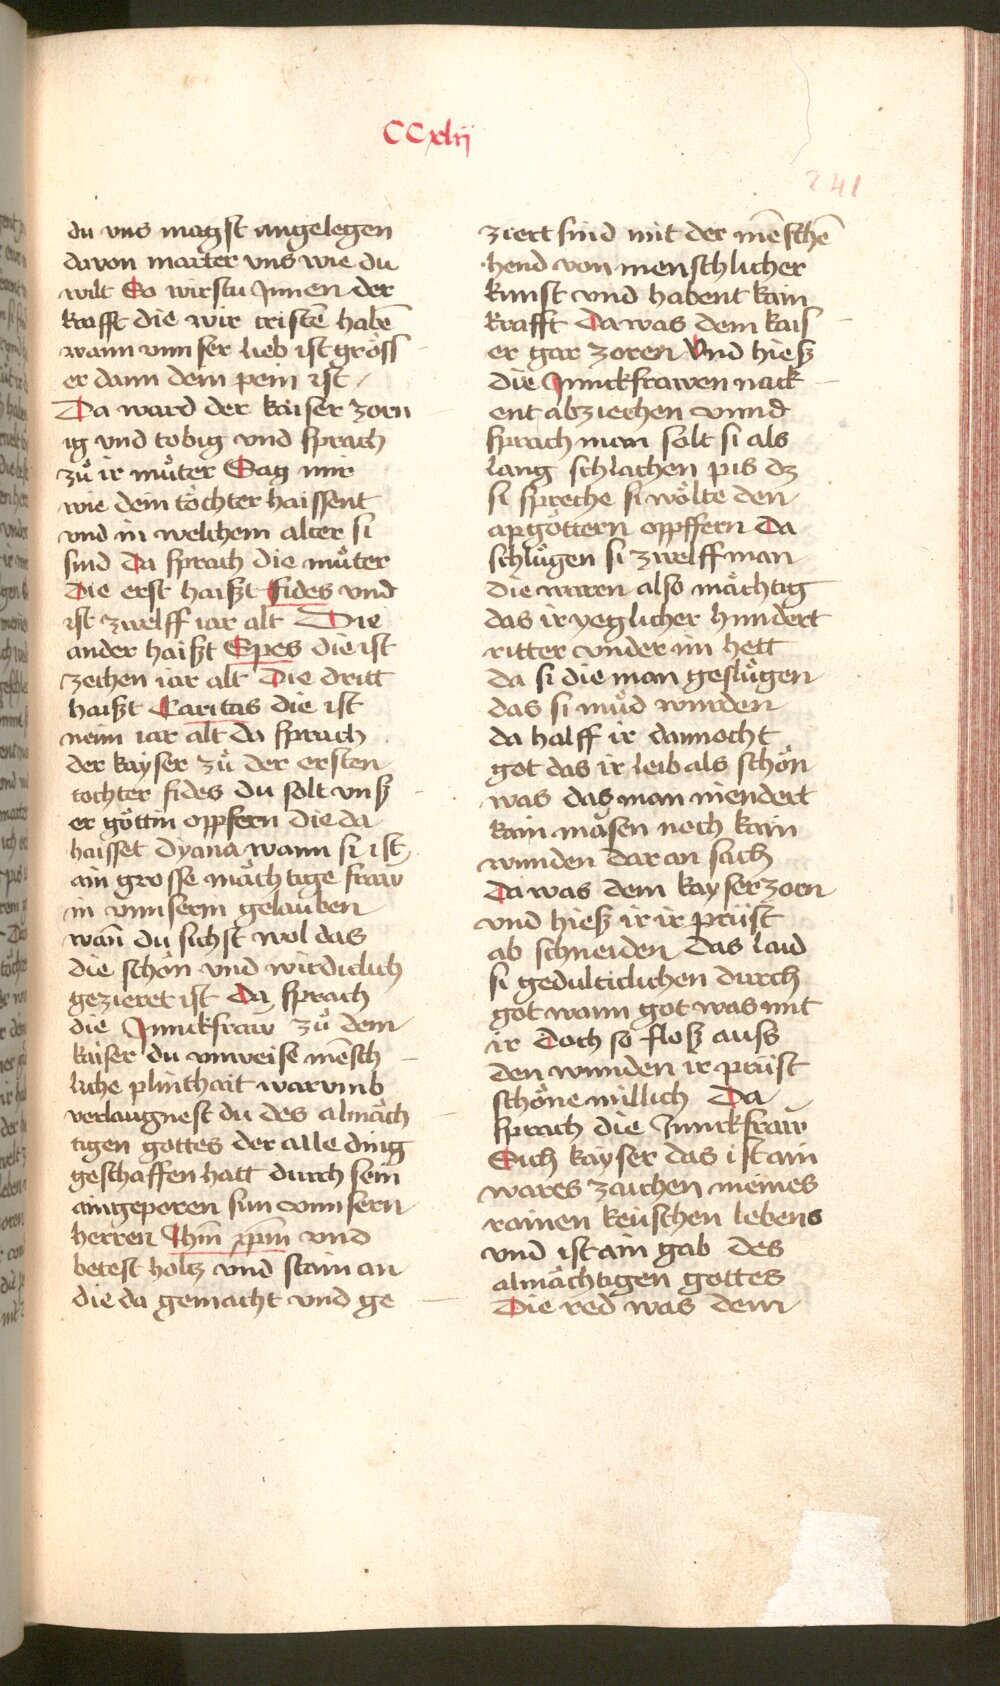 CCxlij
241
du vns magst angelegen
davon marter vns wie du
wilt So wirstu Jnnen der
krafft die wir cristē habē
wann vnnser lieb ist gröss
er dann dein pein ist
Da ward der kaiser zorn
ig vnd tobig vnd sprach
zů ir můter Sag mir
wie dein töchter haissent
vnd in welchem alter si
sind Da sprach die můter
Die erst haißt fides vnd
ist zwelff iar alt Die
ander haißt Spes die ist
zechen iar alt Die dritt
haißt Caritas die ist
nein iar alt da sprach
der kayser zů der ersten
tochter fides du solt vnß
er göttin opfern die da
haisset dyana wann si ist
ain grosse mächtige fraw
in vnnserm gelauben
wān du sichst wol das
die schön vnd wirdiclich
gezieret ist Da sprach
die Junckfraw zů dem
kaiser du vnweise mēsch
liche plinthait warvmb
verlaugnest du des almäch
tigen gottes der alle ding
geschaffen hatt durch sein
aingeporen sun vnnsern
herren Jhm̄ xpm̄ vnd
betest holtz vnd stain an
die da gemacht vnd ge
ziert sind mit der mēschē
hend von menschlicher
kunst vnd habent kain
krafft Da was dem kais
er gar zoren Vnd hieß
die Junckfrawen nack
ent abziechen vnnd
sprach man solt si als
lang schlachen pis dz
si spreche si wölte den
apgöttern opffern Da
schlůgen si zwelff man
die waren also mächtig
das ir yeglicher hundert
ritter vnder im hett
da si die man geslůgen
das si můd wurden
da halff ir dannocht
got das ir leib als schön
was das man niendert
kain masen noch kain
wunden dar an sach
Da was dem kayser zorn
vnd hieß ir ir prüst
ab schneiden das laid
si gedulticlichen durch
got wann got was mit
ir Doch so floß auss
den wunden ir prüst
schöne millich Da
sprach die Junckfraw
Sich kayser das ist ain
wares zaichen meines
rainen keüschen lebens
vnd ist ain gab des
almächtigen gottes
Die red was dem